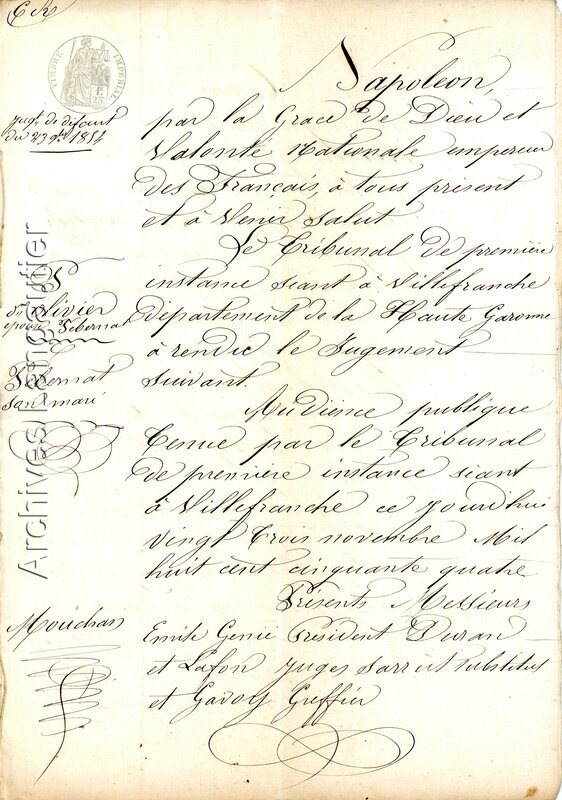 TIMBRE IMPERIAL
1F.
25C.
jugt. de défaut
du 23 9bre 1854
Napoléon,
par la Grace de Dieu et
Volonté Nationale empereur
des Français, à tous présent
et à Venir Salut
Le Tribunal de première
instance séant à Villefranche
département de la Haute Garonne
à rendu le Jugement
suivant.
Audience publique
tenue par le Tribunal
de première instance séant
à Villefranche ce jourdhui
vingt trois novembre Mil
huit cent cinquante quatre
Présents Messieurs
Emile Genié Président Duran
et Lafon juges Sarrut substitut
et Gavoy Greffier
Pr
Olivier
épouse Pébernat
C
Pébernat
son mari
Mouchan
Archives Lengautier